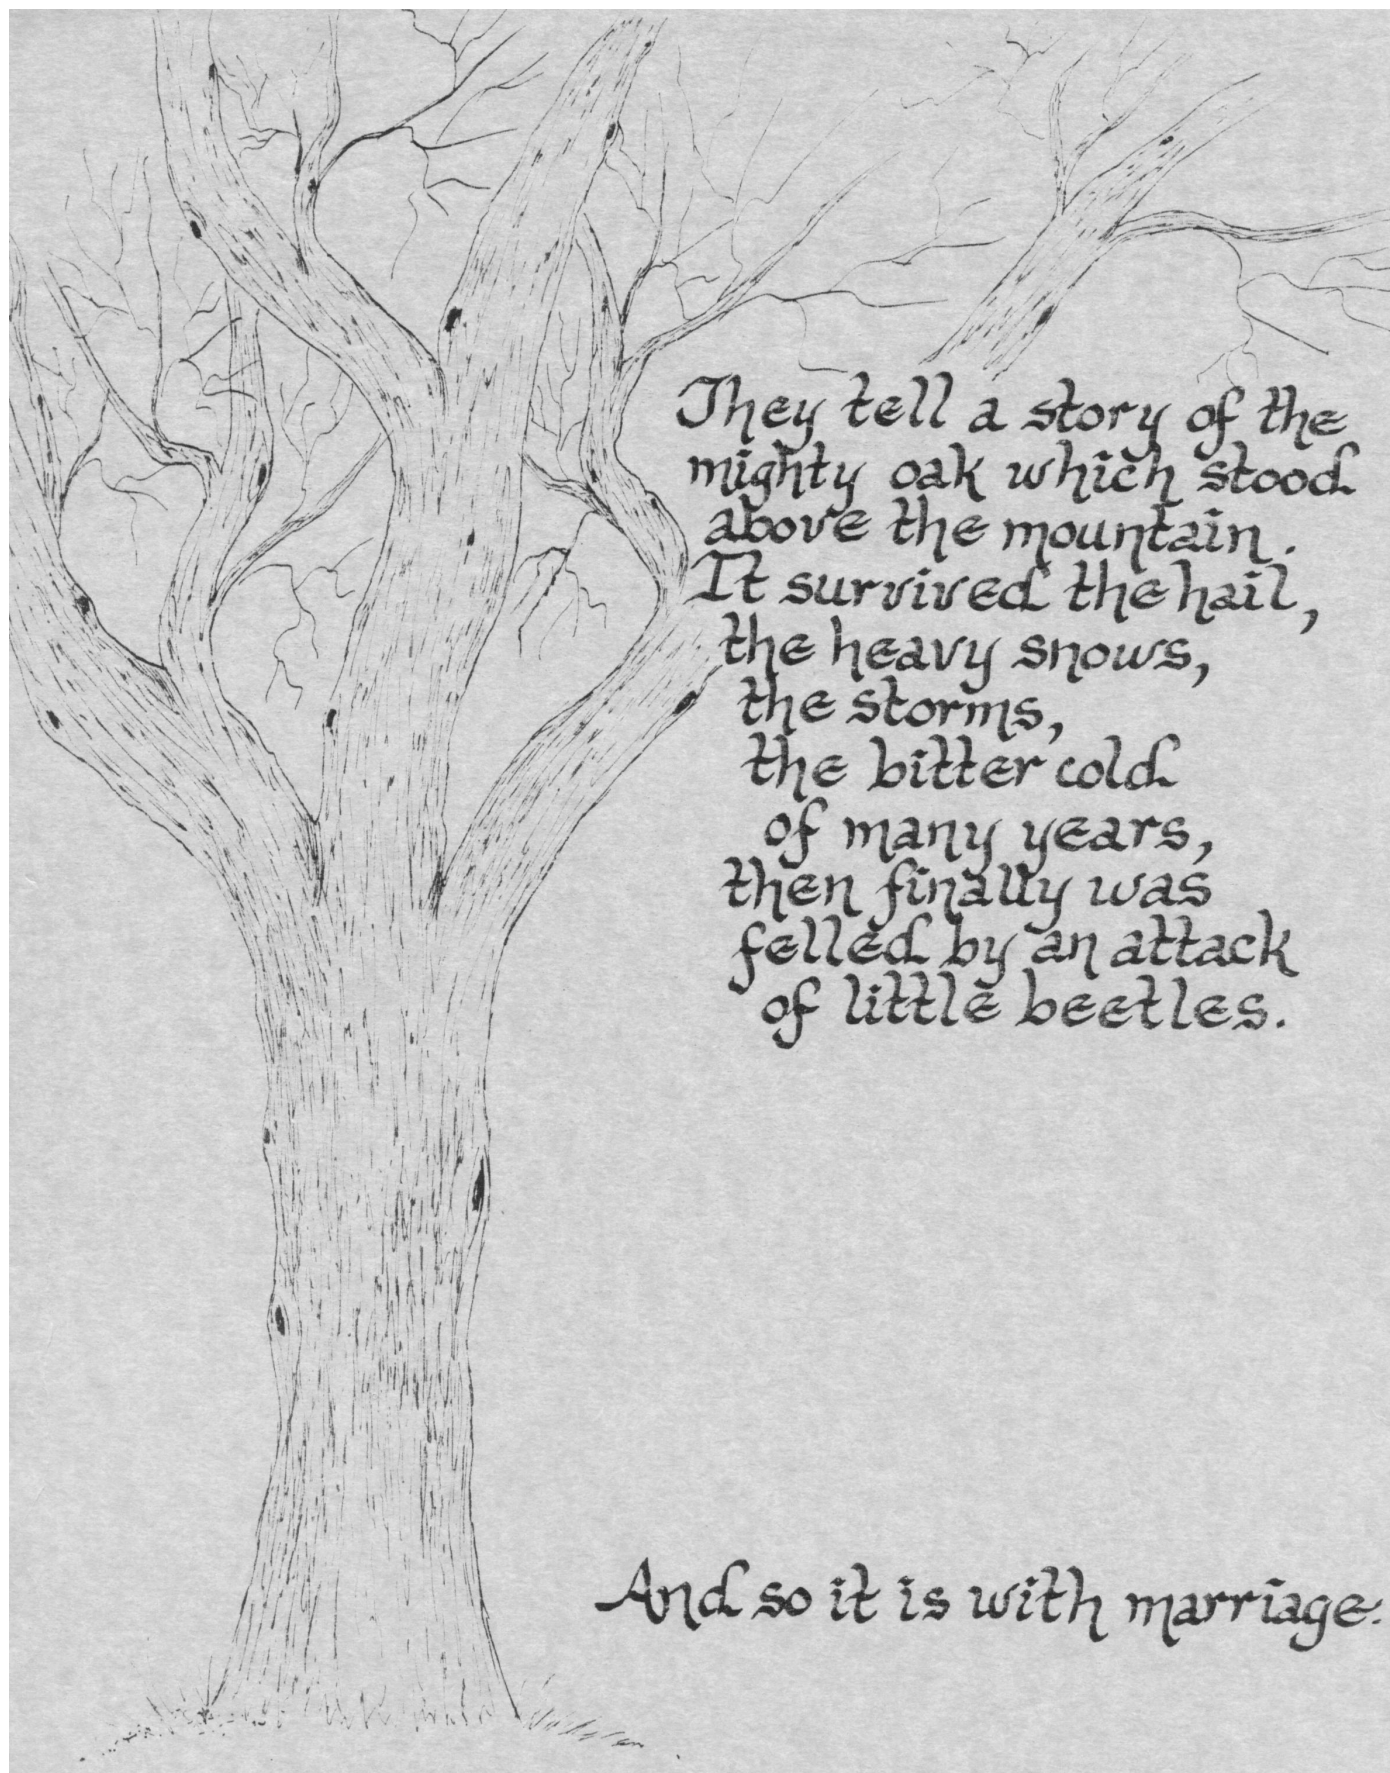 They tell a story of the
mighty oak which stood
above the mountain.
It survived the hail,
the heavy snows,
the storms,
the bitter cold
of many years,
then finally was
felled by an attack
of little beetles.
And so it is with marriage.